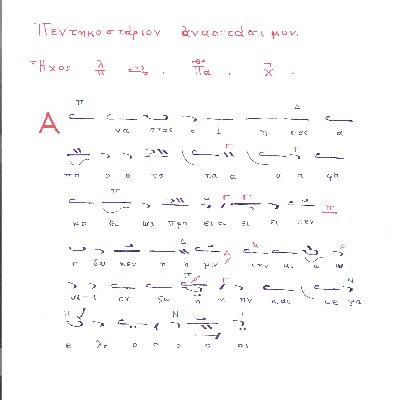 Πεντηκοστάριον ἀναστάσιμον.
Ἦχος λ π Πα . χ .
Α να στας ο Ι η σȣς α
πο ο ο τȣ τα α α α φȣ
κα θω ως προ ει ει ει ει πεν
ε δω κεν η η μιν την αι ω
νι ι ον ζω η η ην και με γα
ε λε ο ο ο ο ος